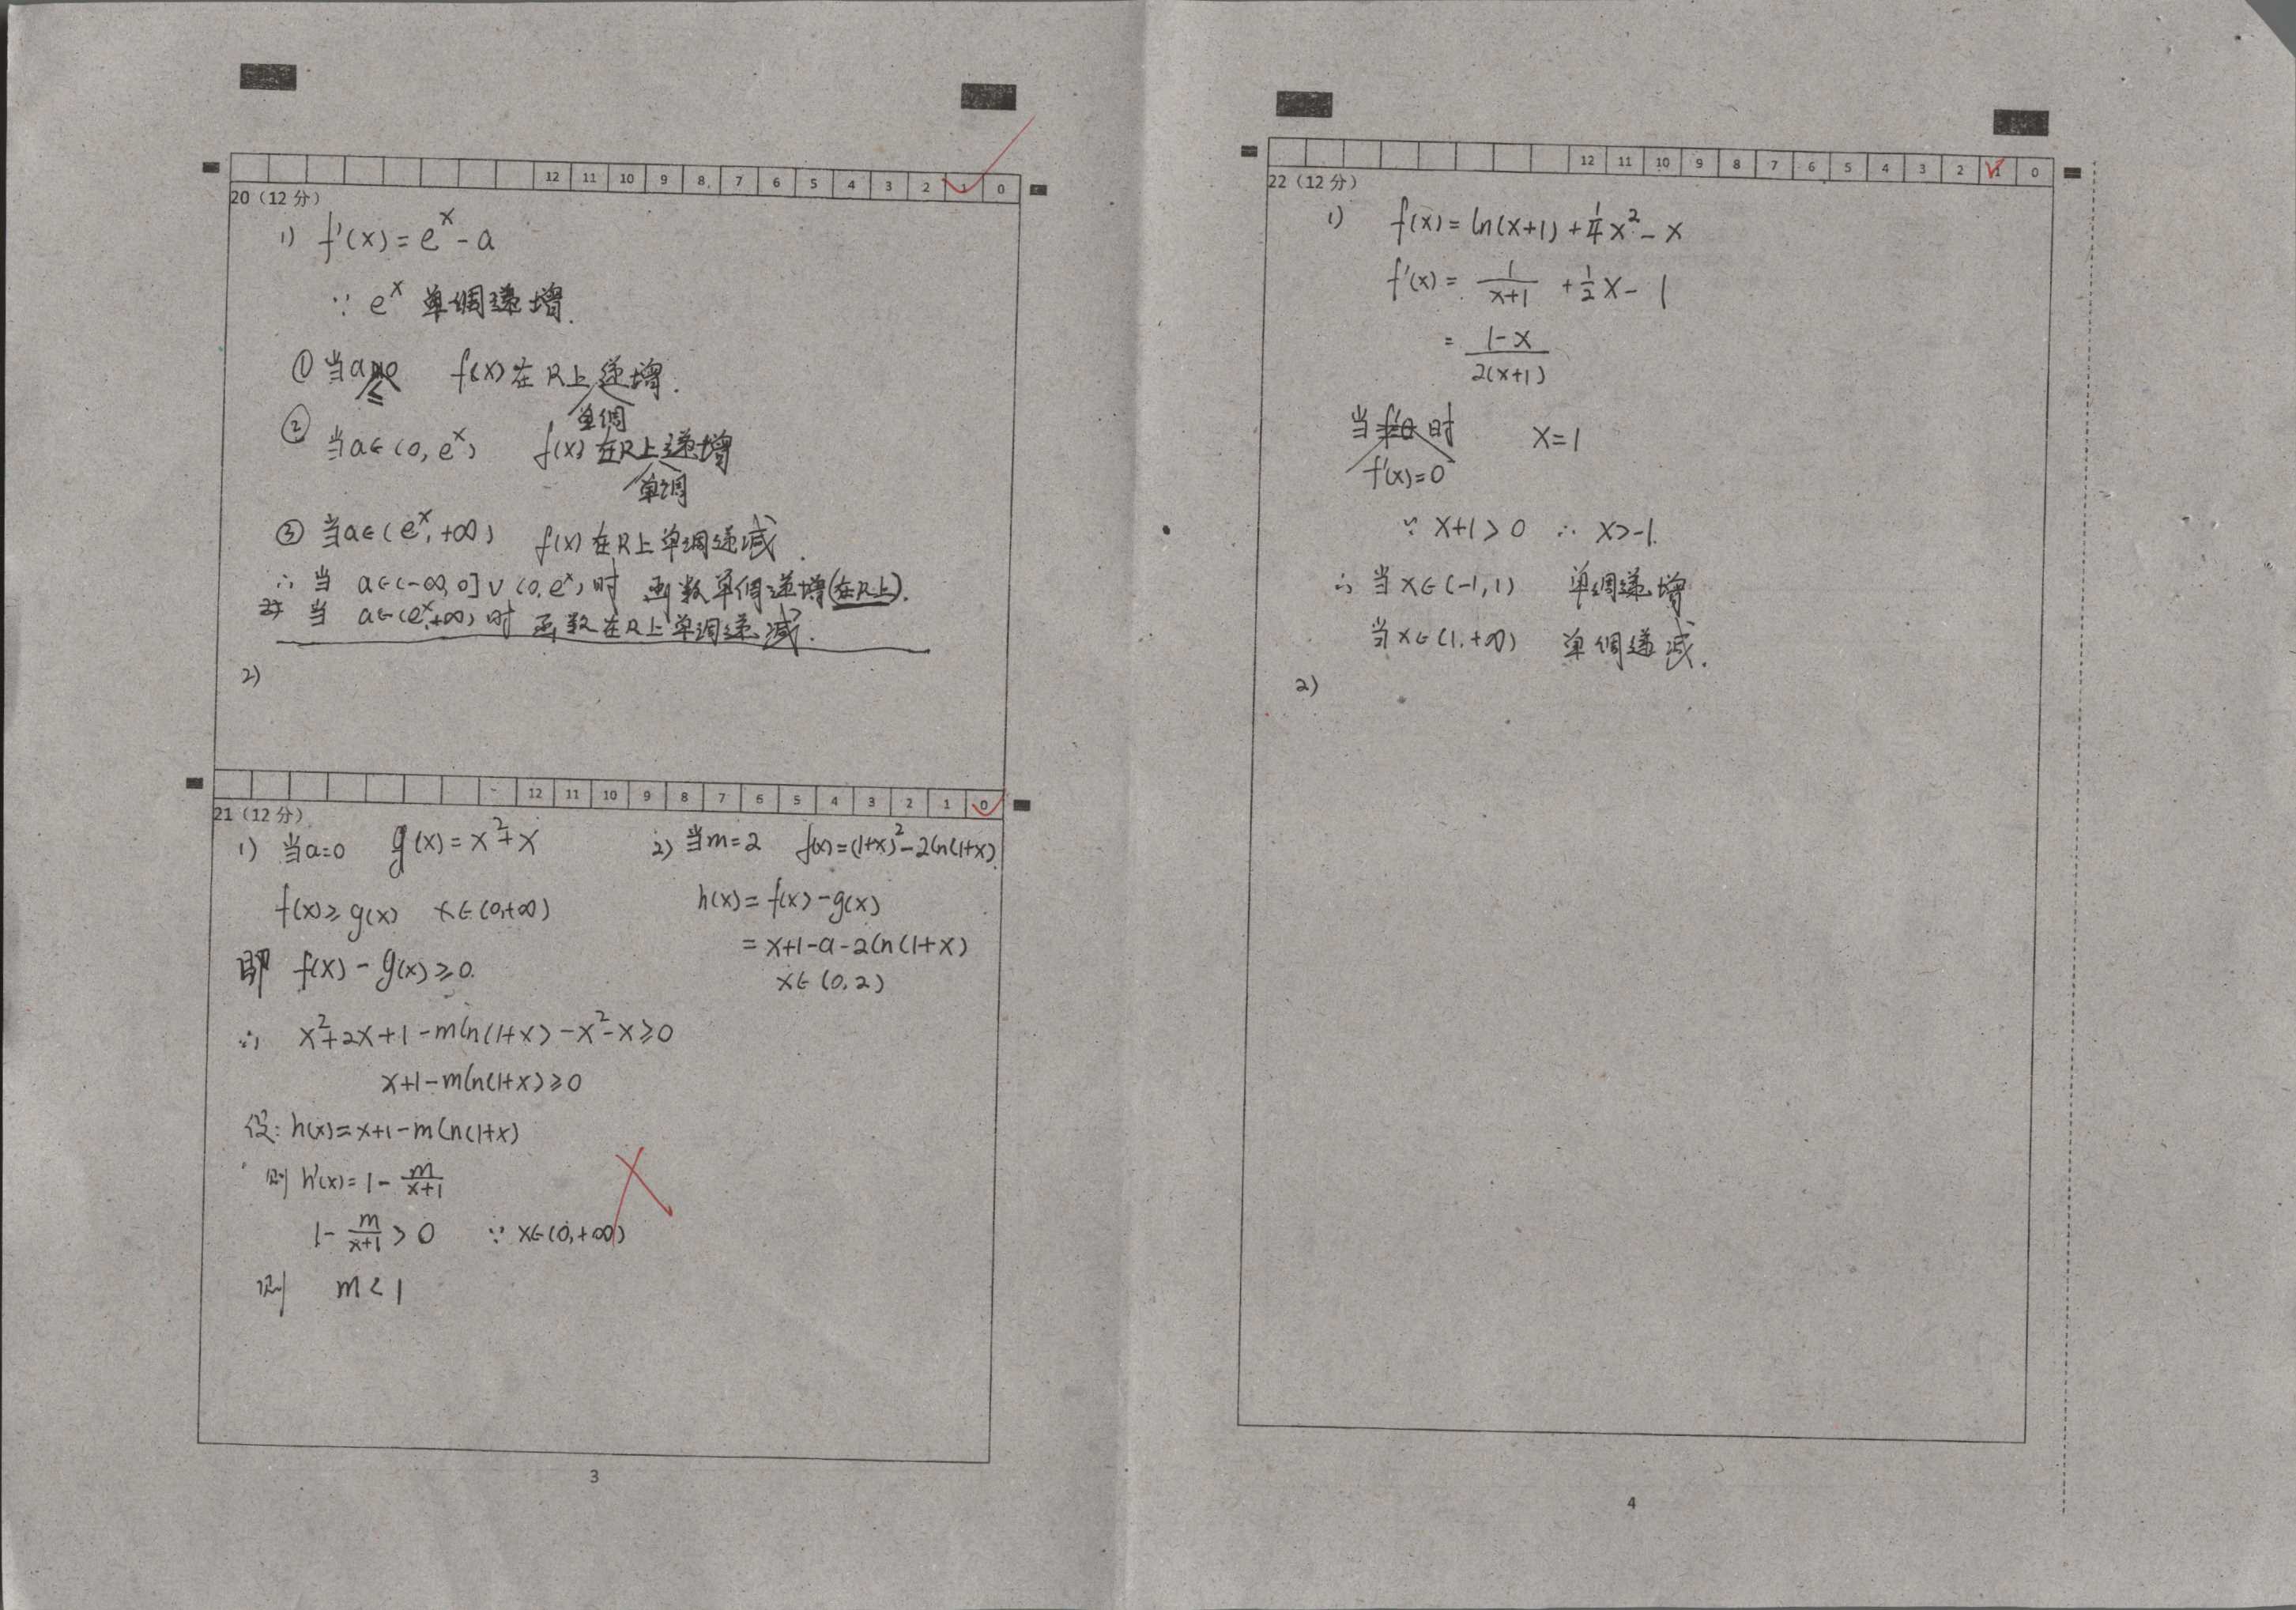 12 11 10 9 8 7 6 5 4 3 2 1 0
20（12 分）
1) f'(x)=e^x-a
∵ e^x 单调递增.
① 当a≤0 f(x)在R上单调递增.
② 当a∈(0,e^x) f(x)在R上单调递增
③ 当a∈(e^x,+∞) f(x)在R上单调递减.
∴ 当 a∈(-∞,0]∪(0,e^x)时 函数单调递增(在R上).
当 a∈(e^x,+∞)时 函数在R上单调递减.
2)
12 11 10 9 8 7 6 5 4 3 2 1 0
21（12 分）
1) 当a=0 g(x)=x²+x
f(x)≥g(x) x∈(0,+∞)
即 f(x)-g(x)≥0.
∴ x²+2x+1-mln(1+x)-x²-x≥0
x+1-mln(1+x)≥0
设: h(x)=x+1-mln(1+x)
则 h'(x)=1-m/(x+1)
1-m/(x+1)>0 ∵ x∈(0,+∞)
则 m<1
2) 当m=2 f(x)=(1+x)²-2ln(1+x)
h(x)=f(x)-g(x)
=x+1-a-2ln(1+x)
x∈(0,2)
3
12 11 10 9 8 7 6 5 4 3 2 1 0
22（12 分）
1) f(x)=ln(x+1)+1/4x²-x
f'(x)=1/(x+1)+1/2x-1
=(1-x)/(2(x+1))
当f'(x)=0时 x=1
∵ x+1>0 ∴ x>-1.
∴ 当x∈(-1,1) 单调递增
当x∈(1,+∞) 单调递减.
2)
4